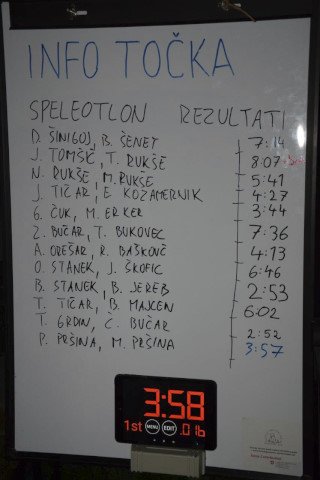 INFO TOČKA
SPELEOTLON REZULTATI
D. ŠINIGOJ, B. ŠENET 7:14
J. TOMŠIČ, T. RUKŠE 8:07
N. RUKŠE, M. RUKŠE 5:41
J. TIČAR, E. KOZAMERNIK 4:27
G. ČUK, M. ERKER 3:44
Z. BUČAR, T. BUKOVEC 7:36
A. OREŠAR, R. BAŠKOVČ 4:13
O. STANEK, J. ŠKOFIC 6:46
B. STANEK, B. JEREB 2:53
T. TIČAR, B. MAJCEN 6:02
T. GRDIN, Č. BUČAR 2:52
P. PRŠINA, M. PRŠINA 3:57
3:58
1st MENU EDIT .01b